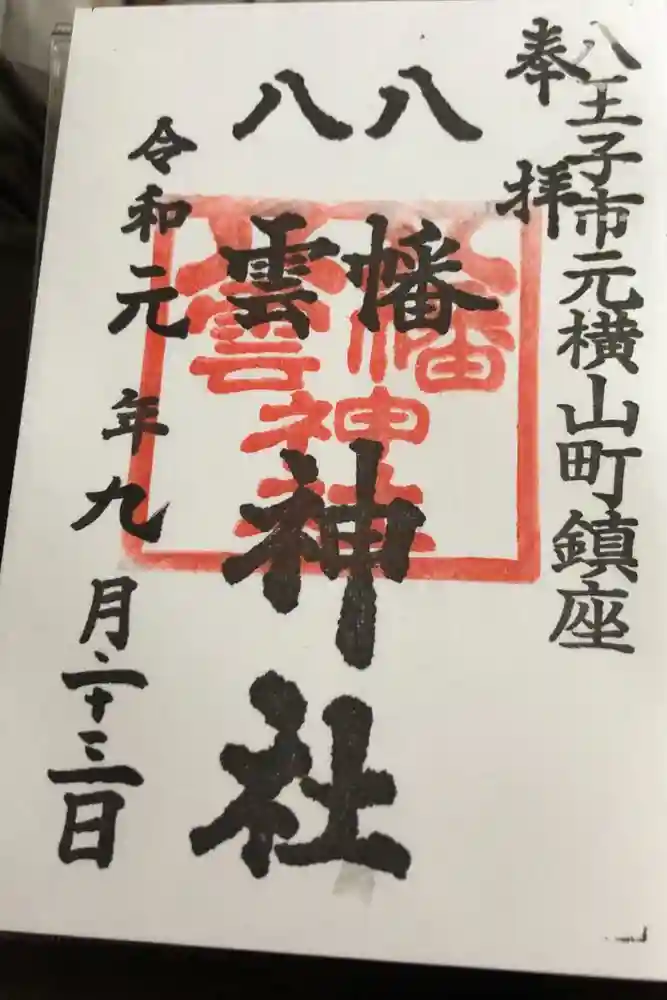 奉拝
八王子市元横山町鎮座
八幡
八雲
神社
八幡
八雲
神社
令和元年九月二十三日